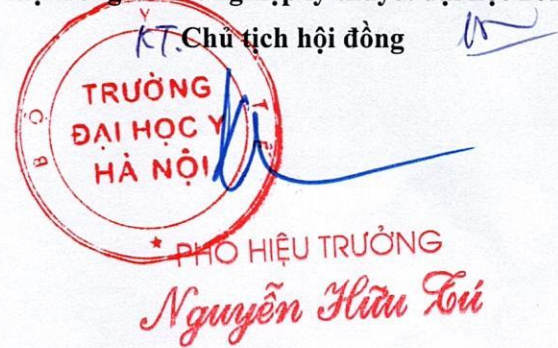 KT. Chủ tịch hội đồng
BỘ Y TẾ
TRƯỜNG
ĐẠI HỌC Y
HÀ NỘI
PHÓ HIỆU TRƯỞNG
Nguyễn Hữu Tú